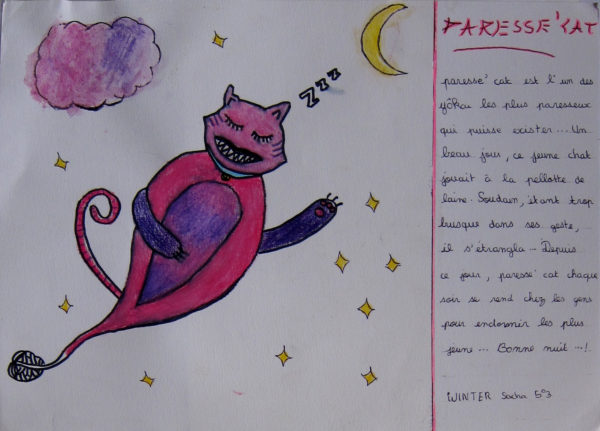 Zzzz
PARESSE'CAT
paresse' cat est l'un des
yôkai les plus paresseux
qui puisse exister... Un
beau jour, ce jeune chat
jouait à la pellotte de
laine. Soudain, étant trop
brusque dans ses geste,
il s'étrangla... Depuis
ce jour, paresse' cat chaque
soir se rend chez les gens
pour endormir les plus
jeune... Bonne nuit...!
WINTER Sacha 5°3